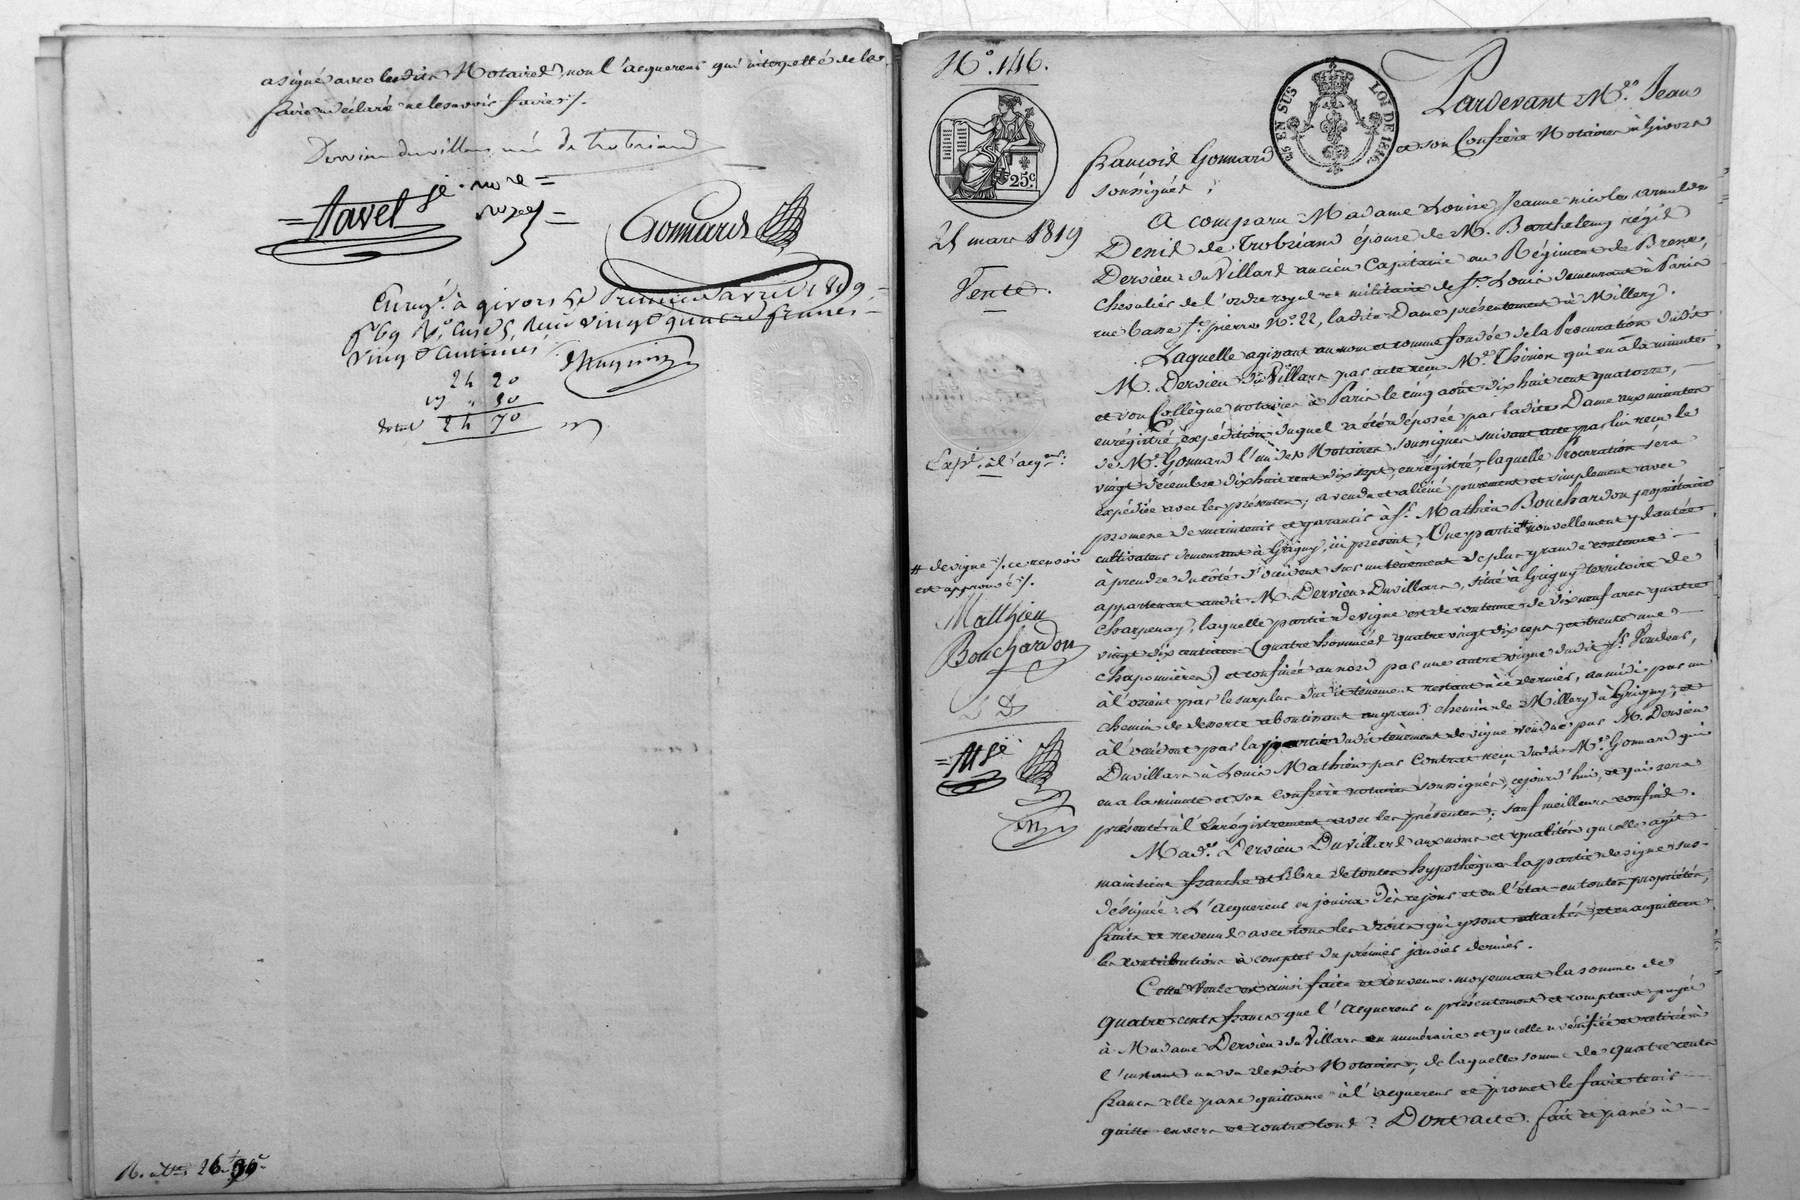 a signé avec lesdits Notaires, non l'acquereur qui interpellé de le
faire a déclaré ne le savoir faire ./.
Dervieu du villars née de trobriand
= Navel
Gonnard
Enreg.é à Givors le Premier avril 1819,
f.o 69 R.o Case 5, Reçu vingt quatre francs
vingt Centimes
24 20
2 40
total 24 70
N.o 146.
25 EN SUS LOI DE 1816.
25.c
Pardevant M.e Jean
François Gonnard et son Confrère Notaires à Givors
soussignés ;
25 mars 1819
Vente.
A comparu Madame Louise Jeanne nicolas arnulde
Denis de Trobriand épouse de M. Barthelemy régis
Dervieu du Villard ancien Capitaine au Régiment de Bresse,
chevalier de l'ordre royal et militaire de S.t Louis demeurant à Paris
rue basse S.t pierre N.o 22, ladite Dame présentement à Millery.
Laquelle agissant au nom et comme fondée de la Procuration dudit
M. Dervieu du Villars par acte reçu M.e Thirion qui en a la minute
et son Collègue notaires à Paris le cinq août dix huit cent quatorze,
enregistré, expédition duquel a été déposée par ladite Dame aux minutes
de M.e Gonnard l'un des Notaires soussignés suivant acte par lui reçu le
vingt décembre dix huit cent dix sept, enregistré, laquelle Procuration sera
expédiée avec les présentes ; a vendu et aliéné purement et simplement avec
promesse de maintenir et garantir à S.r Mathieu Bouchardon propriétaire
cultivateur demeurant à Grigny, ici present, Une partie # nouvellement plantée
à prendre du côté d'occident sur un tènement de plus grande contenue
appartenant audit M. Dervieu Duvillars, situé à Grigny territoire de
Charpenay, laquelle partie de vigne est de contenue de dix neuf ares quatre
vingt dix centiares (quatre hommées quatre vingt dix sept et trente une
chaponnières) et confinée au nord par une autre vigne dudit S.r
à l'orient par le surplus dudit tènement restant à ce dernier, au midi par un
chemin de desserte aboutissant au grand chemin de Millery à Grigny, et
à l'occident par la partie dudit tènement de vigne vendue par M. Dervieu
Duvillars à Louis Mathieu par contrat reçu dudit M.e Gonnard qui
en a la minute et son confrère notaires soussignés, cejourd'hui, et qui sera
présenté à l'enregistrement avec les présentes ; sauf meilleurs confins.
Exp.n à l'acq.eur
# de vigne ./. ce renvoi
est approuvé ./.
Matthieu
Bouchardon
D D
Mad.e Dervieu Duvillard aux noms et qualités qu'elle agit
maintient franche et libre de toutes hypothèques la partie de vigne sus-
désignée. L'acquereur en jouira dès ce jour et en l'état en toutes propriétés,
fruits et revenus avec tous les droits qui y sont attachés, et en acquittera
les contributions à compter du premier janvier dernier.
Cette Vente est ainsi faite et convenue moyennant la somme de
quatre cents francs que l'acquereur a présentement et comptant payé
à Madame Dervieu du Villars en numéraire et qu'elle a vérifiée et retirée à
l'instant au vu desdits Notaires, de laquelle somme de quatre cents
francs elle passe quittance à l'acquereur et promet le faire tenir
quitte envers et contre tous. Dont acte. fait et passé à